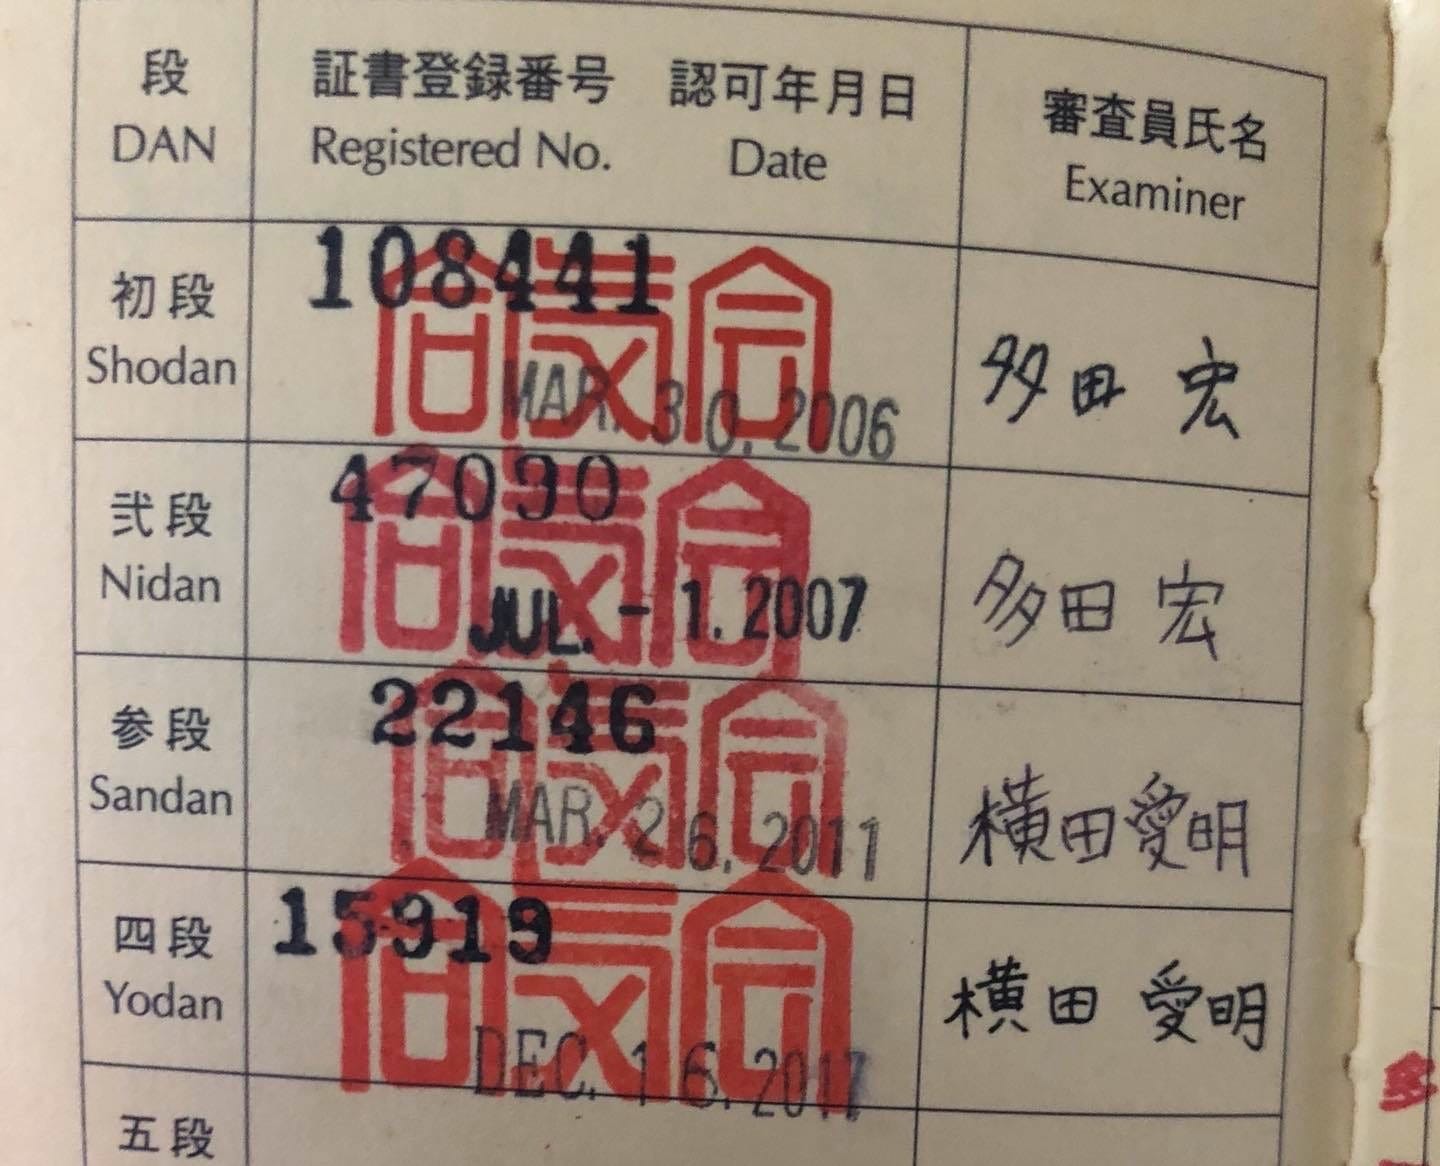 段
DAN
証書登録番号 認可年月日
Registered No. Date
審査員氏名
Examiner
初段
Shodan
108441
合気会
MAR. 30. 2006
多田 宏
弐段
Nidan
47090
合気会
JUL. -1. 2007
多田 宏
参段
Sandan
22146
合気会
MAR. 26. 2011
横田愛明
四段
Yodan
15919
合気会
DEC. 16. 2017
横田 愛明
五段
多